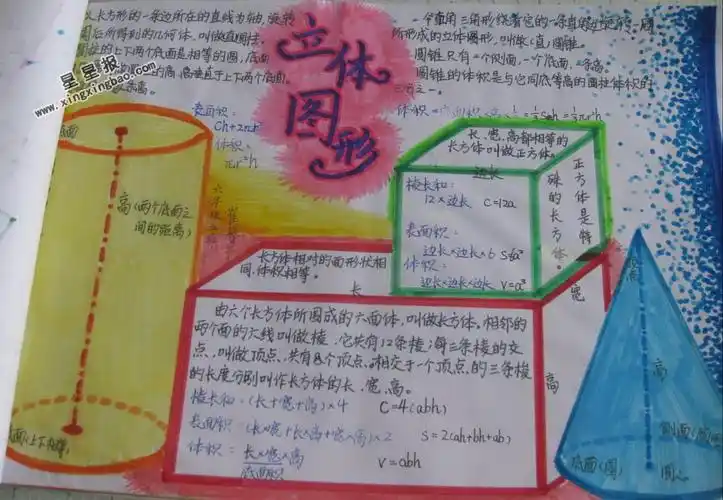 以长方形的一条边所在的直线为轴,旋转
所得到的几何体,叫做直圆柱。
的上下两个底面是相等的圆,底面
的高,高垂直于上下两个底面
星星报
www.xingxingbao.com
表面积:
Ch+2πr²
体积:
πr²h
立体
图形
一个直角三角形绕着它的一条直角边旋转一周
所形成的立体图形,叫做(直)圆锥。
圆锥只有一个侧面,一个底面,一条高。
圆锥的体积是与它同底等高的圆柱体体积的
三分之一。
长、宽、高都相等的
长方体叫做正方体。
边长
棱长和:
12×边长 C=12a
表面积:
边长×边长×6 S=6a²
体积:
边长×边长×边长 V=a³
正方体是特殊的长方体。
高(两个底面之
间的距离)
长方体相对的面形状相
同,体积相等。
长
宽
高
由六个长方体所围成的六面体,叫做长方体,相邻的
两个面的六线叫做棱,它共有12条棱;每三条棱的交
点,叫做顶点,共有8个顶点。相交于一个顶点,的三条棱
的长度分别叫作长方体的长、宽、高。
棱长和:(长+宽+高)×4 C=4(abh)
表面积:(长×宽+长×高+宽×高)×2 S=2(ah+bh+ab)
体积:长×宽×高 V=abh
底面积
顶点
高
侧面
底面(圆)
圆心